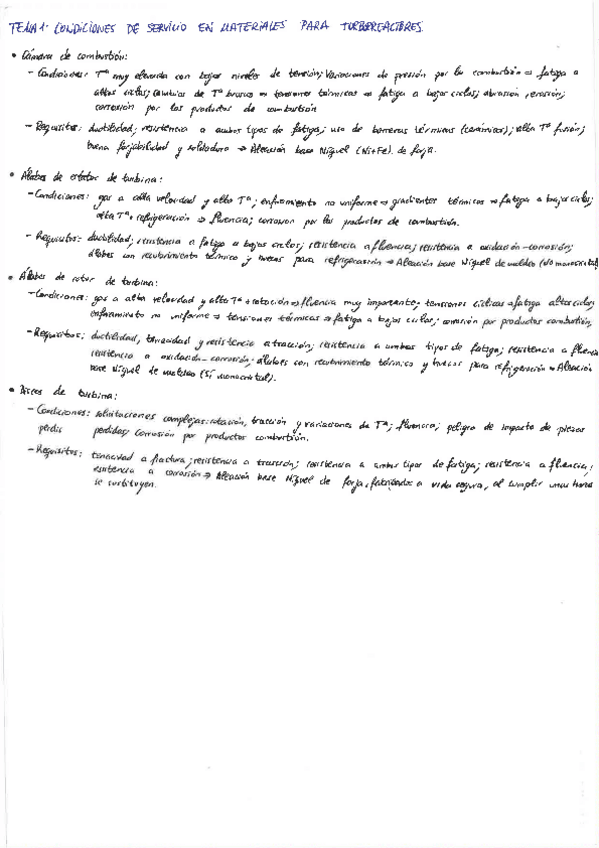 TEMA 1: CONDICIONES DE SERVICIO EN MATERIALES PARA TURBORREACTORES.
• Cámara de combustión:
- Condiciones: Tª muy elevada con bajos niveles de tensión; Variaciones de presión por la combustión ⇒ fatiga a
altos ciclos; Cambios de Tª bruscos ⇒ tensiones térmicas ⇒ fatiga a bajos ciclos; abrasión, erosión;
corrosión por los productos de combustión
- Requisitos: ductilidad; resistencia a ambos tipos de fatiga; uso de barreras térmicas (cerámicos); alta Tª fusión;
buena forjabilidad y soldadura ⇒ Aleación base Níquel (Ni+Fe) de forja.
• Álabes de estator de turbina:
- Condiciones: gas a alta velocidad y alta Tª; enfriamiento no uniforme ⇒ gradientes térmicos ⇒ fatiga a bajos ciclos;
alta Tª + refrigeración ⇒ fluencia; corrosión por los productos de combustión.
- Requisitos: ductilidad; resistencia a fatiga a bajos ciclos; resistencia a fluencia; resistencia a oxidación-corrosión;
álabes con recubrimiento térmico y huecos para refrigeración ⇒ Aleación base Níquel de moldeo (No monocristal)
• Álabes de rotor de turbina:
- Condiciones: gas a alta velocidad y alta Tª + rotación ⇒ fluencia muy importante; tensiones cíclicas ⇒ fatiga altos ciclos;
enfriamiento no uniforme ⇒ tensiones térmicas ⇒ fatiga a bajos ciclos; corrosión por productos combustión,
- Requisitos: ductilidad, tenacidad y resistencia a tracción; resistencia a ambos tipos de fatiga; resistencia a fluencia
resistencia a oxidación-corrosión; álabes con recubrimiento térmico y huecos para refrigeración ⇒ Aleación
base Níquel de moldeo (Sí monocristal).
• Discos de turbina:
- Condiciones: solicitaciones complejas: rotación, tracción y variaciones de Tª; fluencia; peligro de impacto de piezas
perdidas; corrosión por productos combustión.
- Requisitos: tenacidad a fractura; resistencia a tracción; resistencia a ambos tipos de fatiga; resistencia a fluencia;
resistencia a corrosión ⇒ Aleación base Níquel de forja, fabricados a vida segura, al cumplir unas horas
se sustituyen.